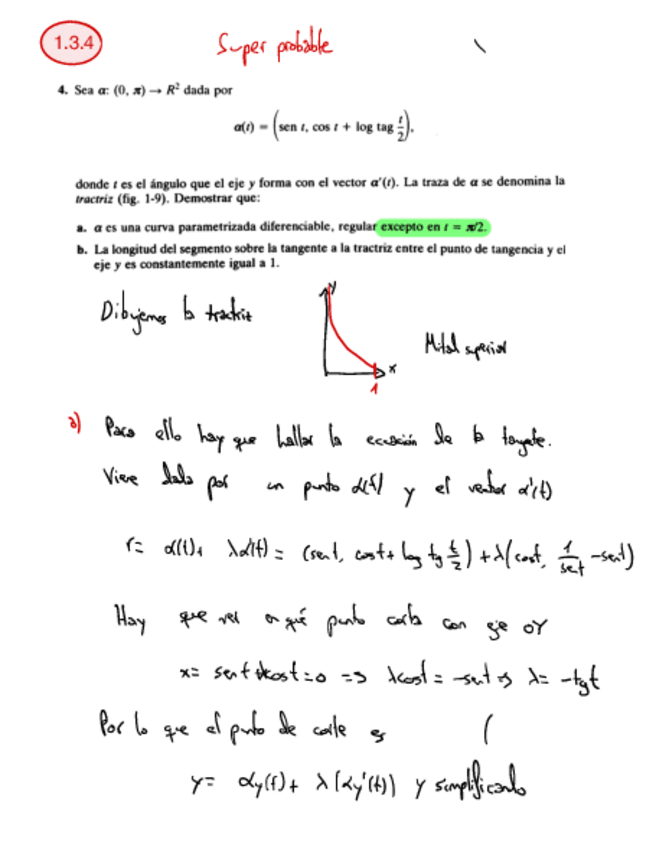 1.3.4
Super probable
4. Sea α: (0, π) → R² dada por
α(t) = (sen t, cos t + log tag t/2),
donde t es el ángulo que el eje y forma con el vector α'(t). La traza de α se denomina la
tractriz (fig. 1-9). Demostrar que:
a. α es una curva parametrizada diferenciable, regular excepto en t = π/2.
b. La longitud del segmento sobre la tangente a la tractriz entre el punto de tangencia y el
eje y es constantemente igual a 1.
Dibujemos la tractriz
y
x
1
Mitad superior
a) Para ello hay que hallar la ecuación de la tangente.
Viene dada por un punto α(t) y el vector α'(t)
r = α(t) + λα'(t) = (sent, cost + log tg t/2) + λ(cost, 1/sent - sent)
Hay que ver en qué punto corta con eje OY
x = sent + λcost = 0 => λcost = -sent => λ = -tgt
Por lo que el punto de corte es (
y = αy(t) + λ(αy'(t)) y simplificando